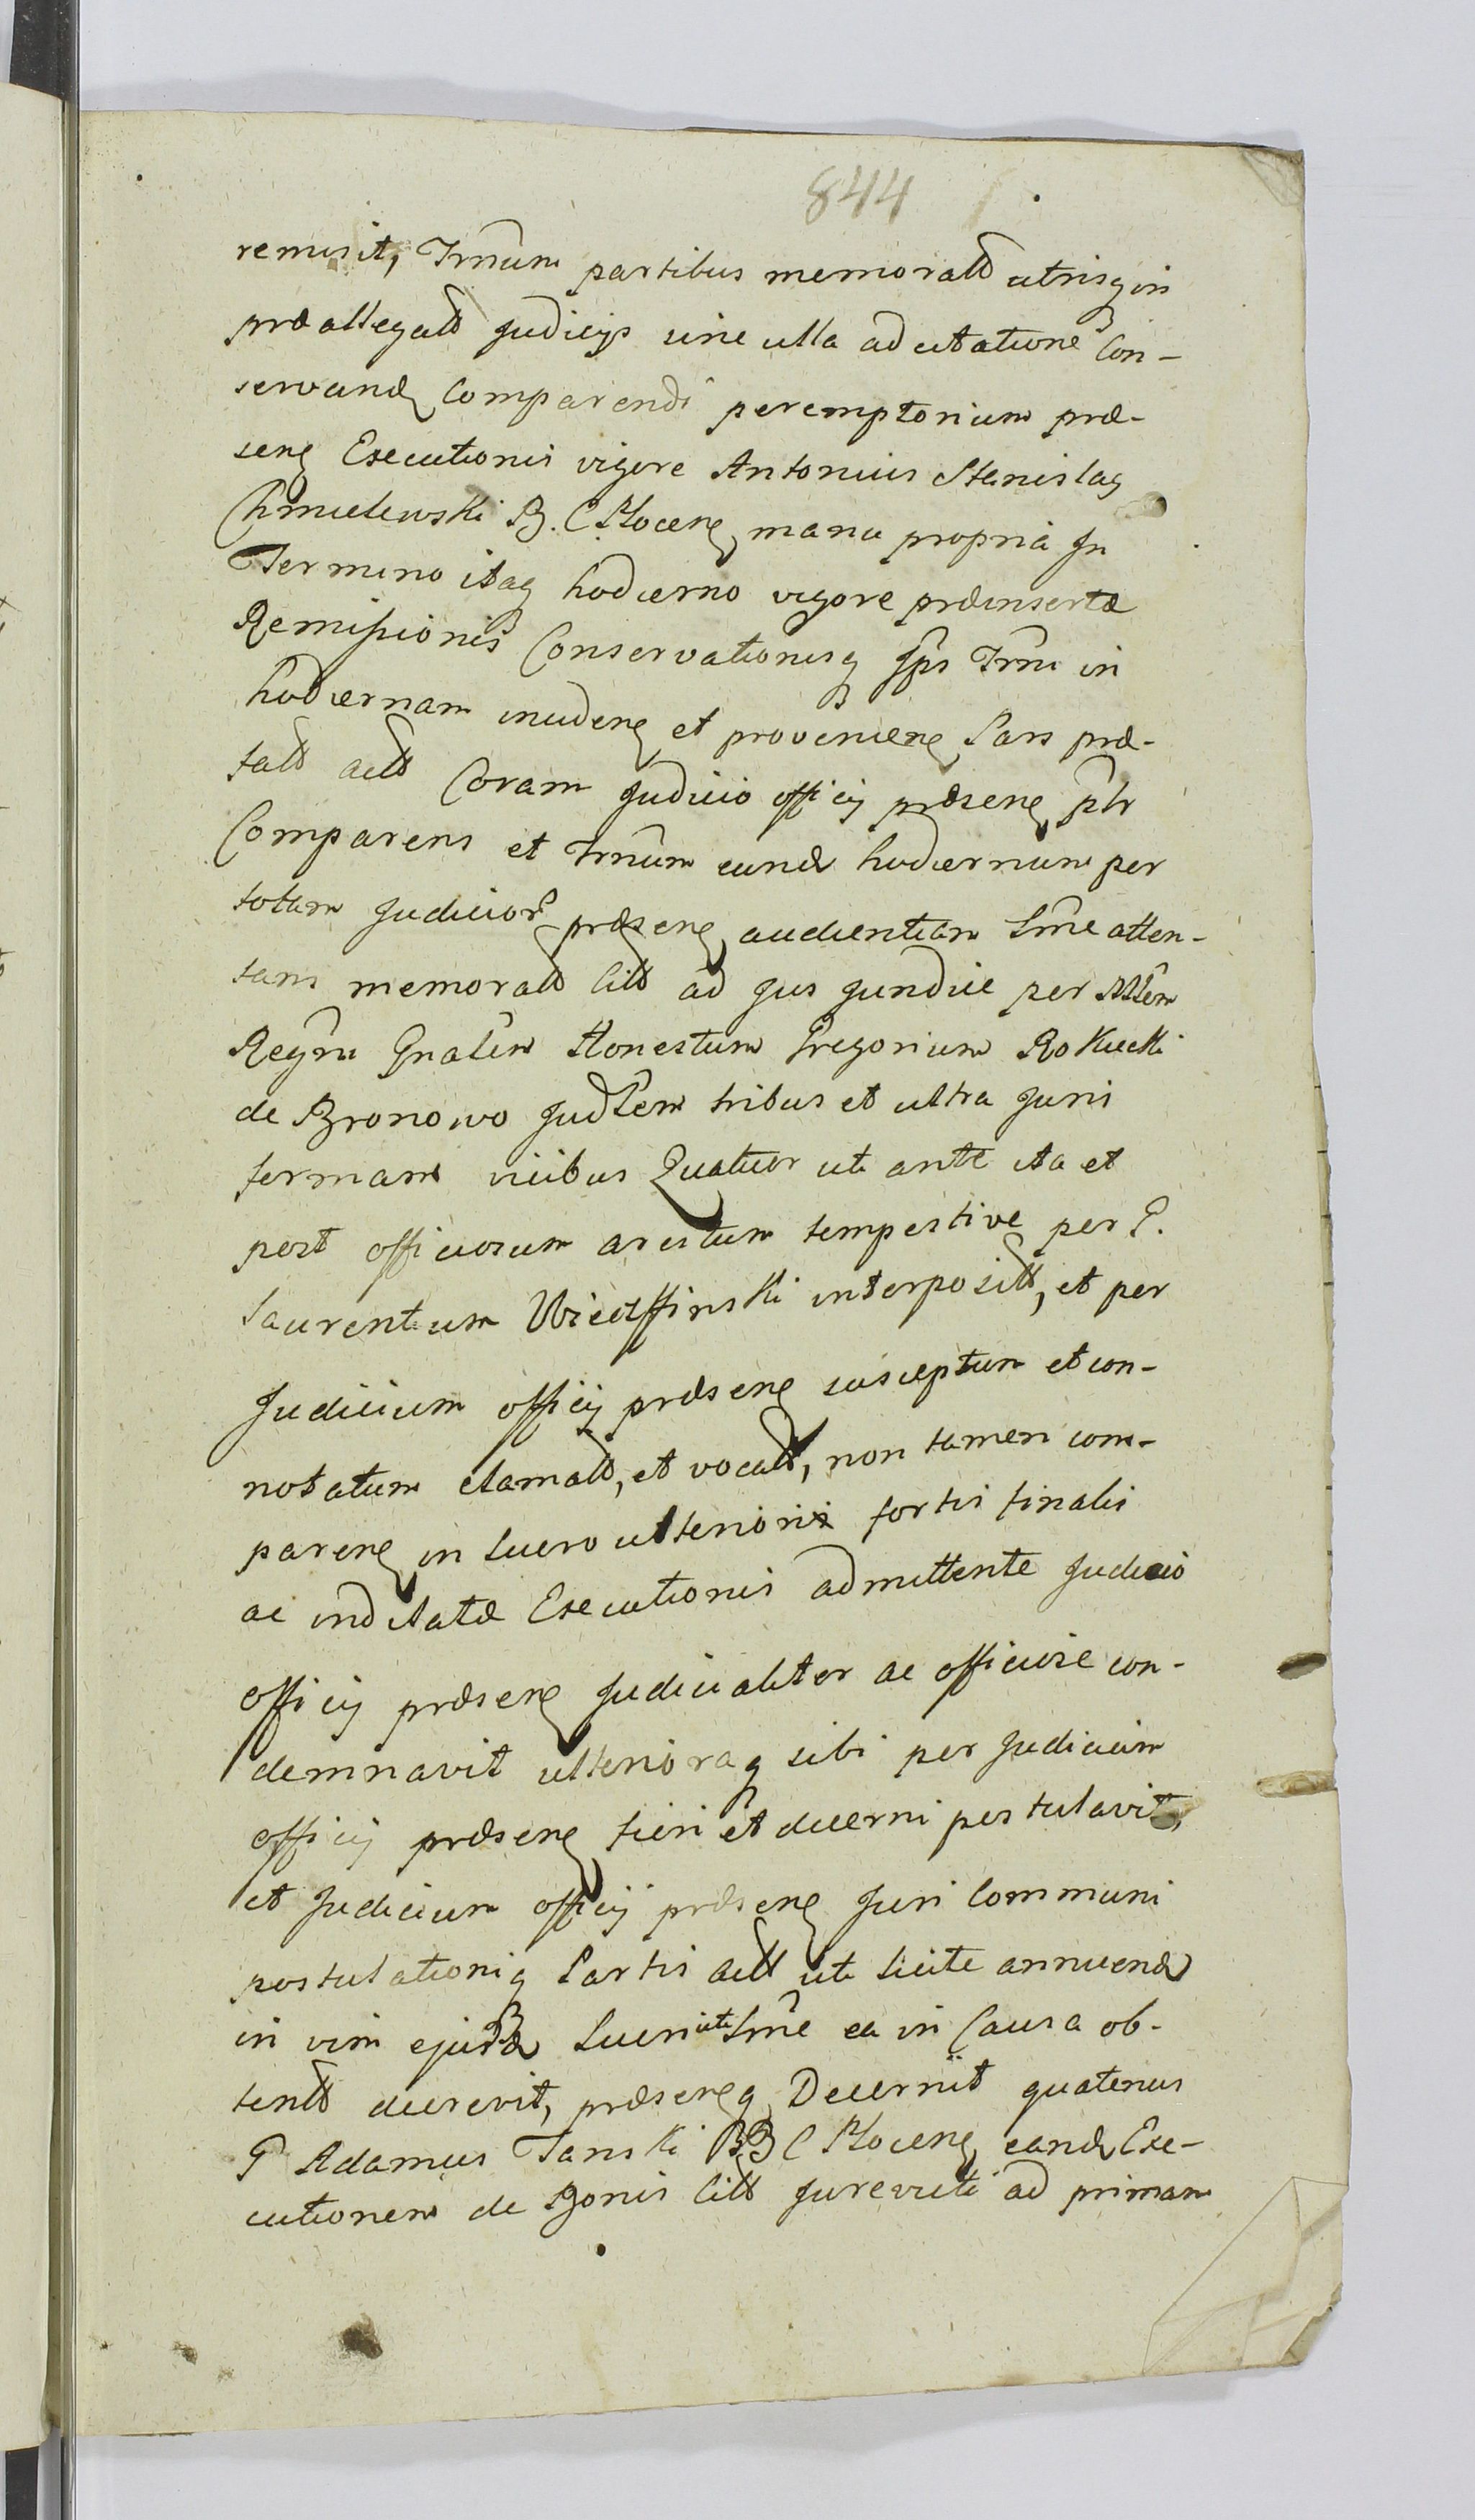 844
remisit, Trmum partibus memoratt utrisq in
præallegatt Judicijs sine ulla adcitatione Con-
servand Comparendi peremptorium præ-
sen Executionis vigore Antonius Stanislaq
Chmielewski B. C Plocen manu propria In
Termino itaq hodierno vigore præinsertæ
Remissionis Conservationisq Trmi in
hodiernam inciden et provenien Pars præ-
fatt actt Coram Judicio officij præsen pltr
Comparens et Trmum eund hodiernum per
totam Judicior præsen audientiam Lme atten-
tans memoratt Citt ad Jus Jundice per Mtlem
Regni Gnalem Honestum Gregorium Rokicki
de Bronowo Judlem tribus et ultra Juris
formam vicibus Quatuor uti ante ita et
post officiosum arestum tempestive per G.
Laurentium interpositt, et per
Judicium officij præsen susceptum et con-
notatum clamatt, et vocatt, non tamen com-
paren in Lucro ulterioris fortis finalis
ac indilatæ Executionis admittente Judicio
officij præsen Judicialiter ac officiose con-
demnavit ulterioraq sibi per Judicium
officij præsen fieri et decerni postulavit,
et Judicium officij præsen Juri Communi
postulationiq Partis actt uti licite annuend
in vim ejusd Lucri uti Lme ea in Causa ob-
tentt decrevit, præsenq Decernit quatenus
G Adamus Tanski BB C Plocen eand Exe-
cutionem de Bonis Citt Jurevicti ad primam